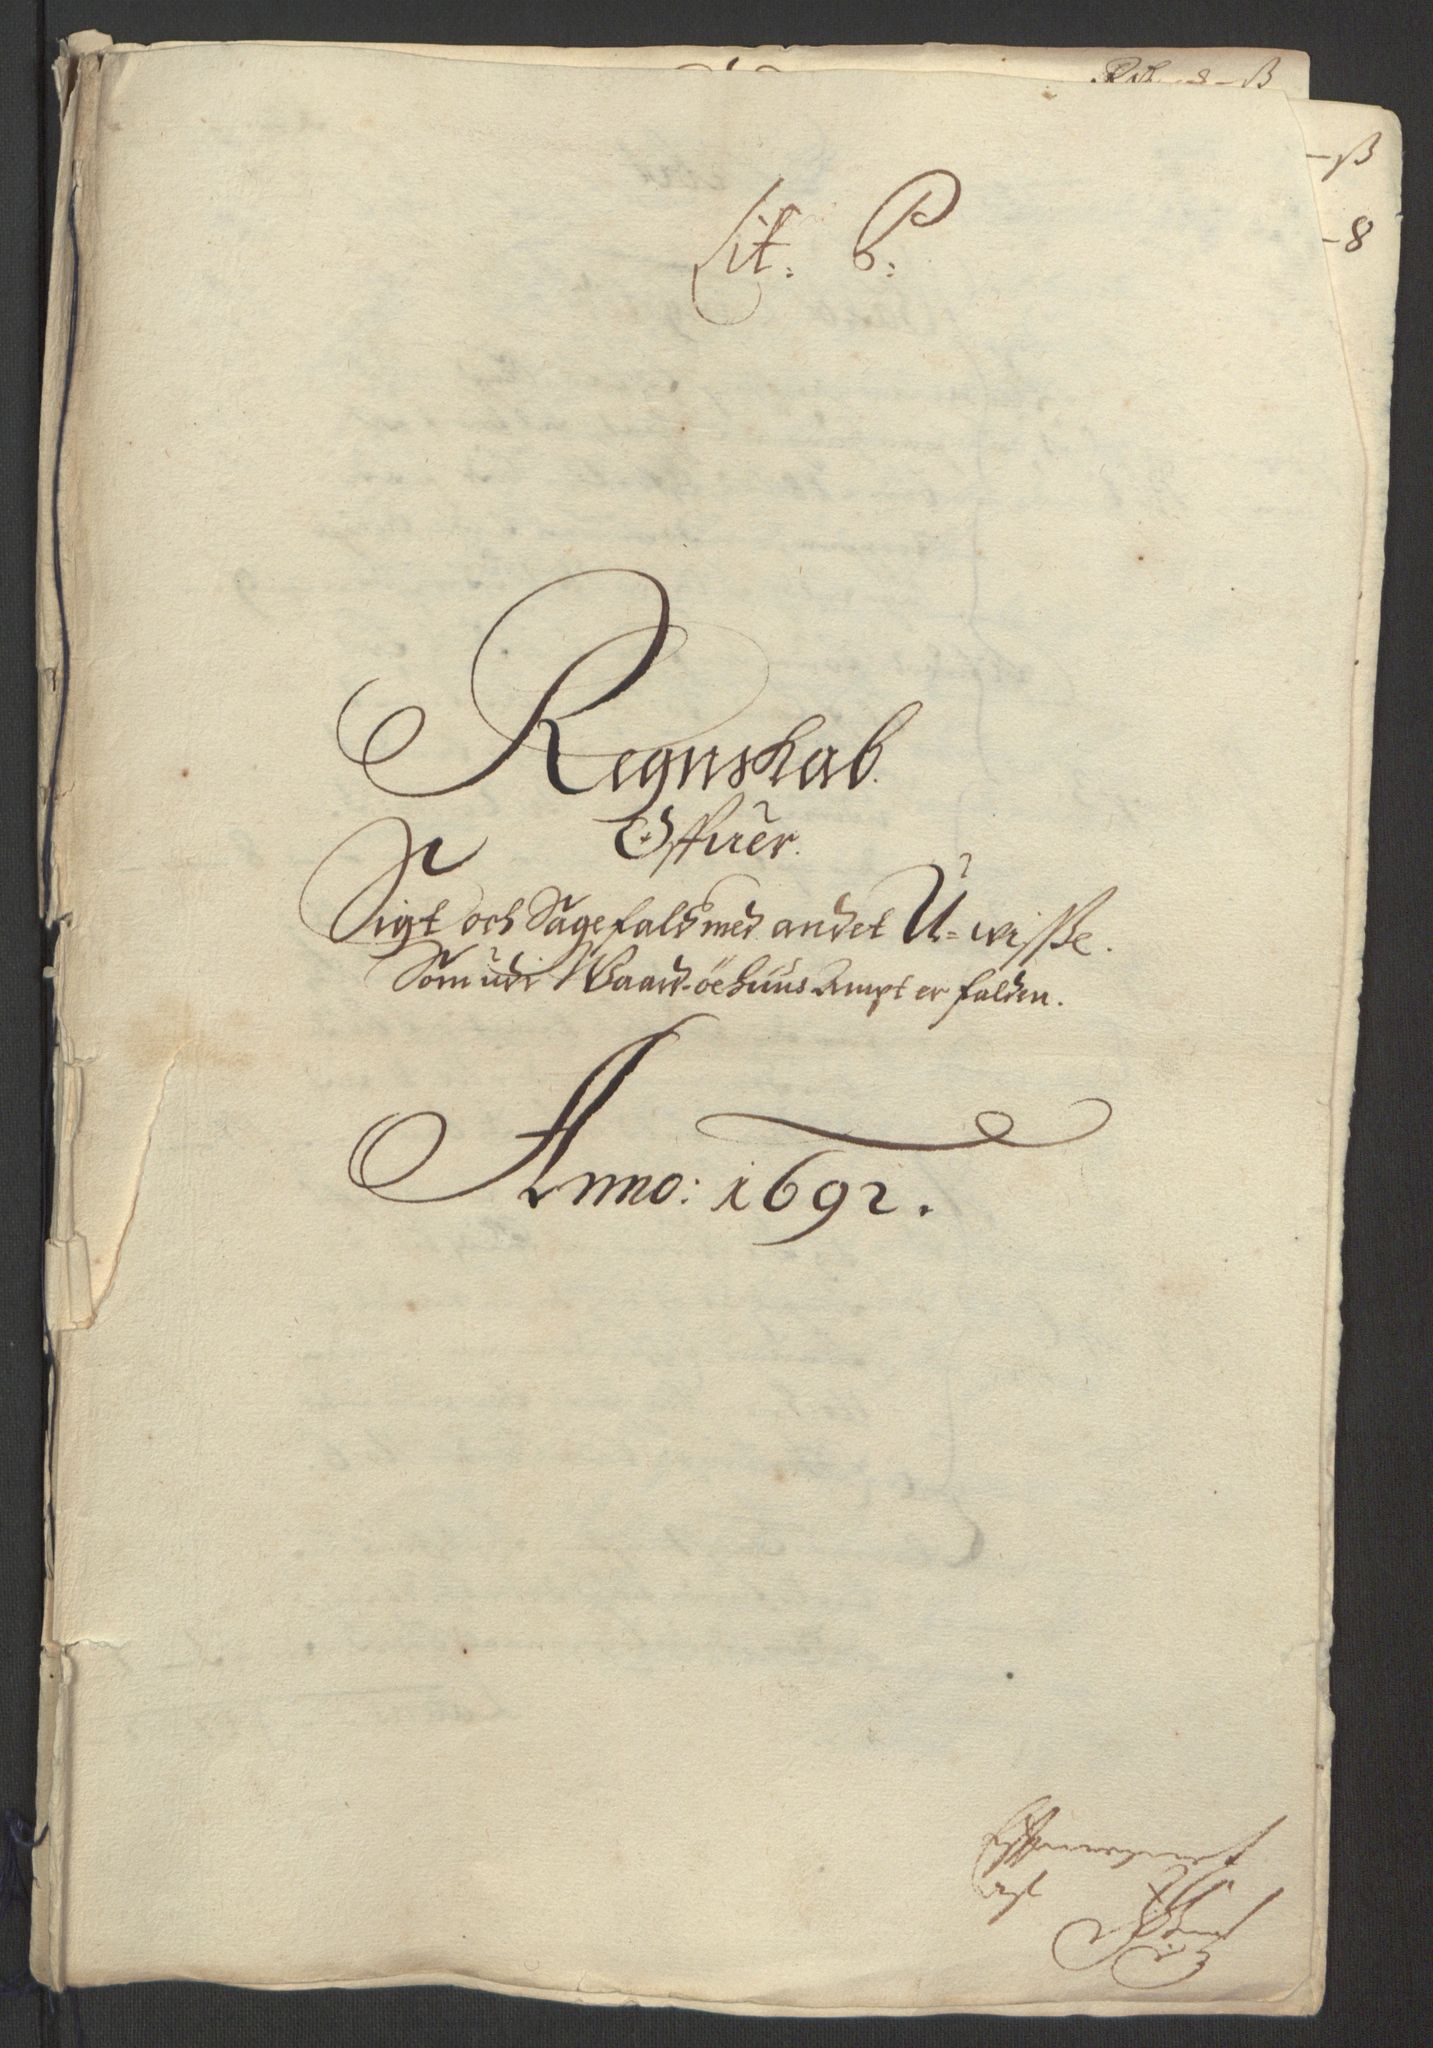 Lit. P:
Regnskab
Offuer
Sigt och Sagefald med andet U-wisse.
Som udi Waardøehuus Ampt er falden.
Anno: 1692.